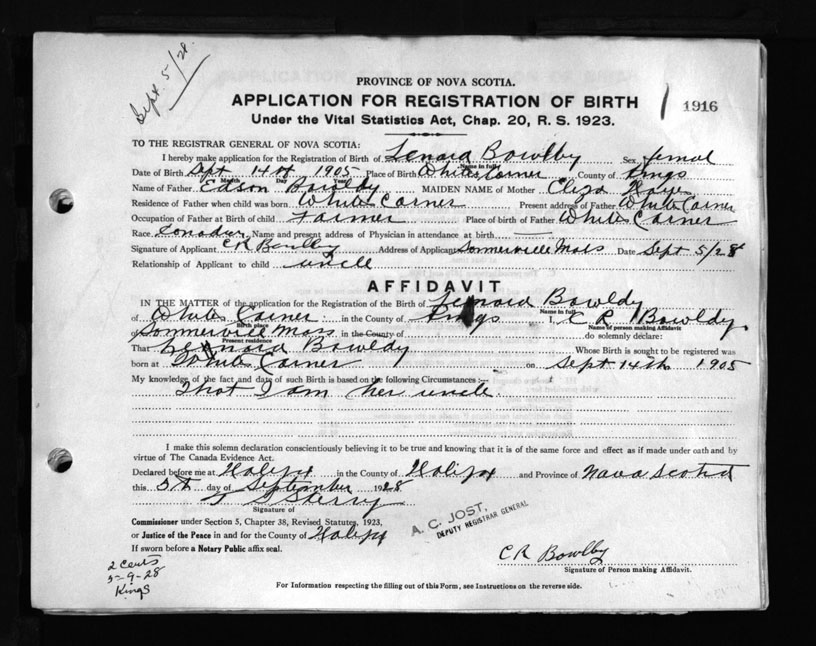 Sept 5/28
PROVINCE OF NOVA SCOTIA.
APPLICATION FOR REGISTRATION OF BIRTH
1916
Under the Vital Statistics Act, Chap. 20, R. S. 1923.
TO THE REGISTRAR GENERAL OF NOVA SCOTIA:
I hereby make application for the Registration of Birth of Lenard Bowlby Sex femal
Name in full
Date of Birth Sept 14th 1905 Place of Birth Whites Corner County of Kings
Month Day Year
Name of Father Edson Bowldy MAIDEN NAME of Mother Eliza Hayes
Residence of Father when child was born White Corner Present address of Father White Corner
Occupation of Father at Birth of child Farmer Place of birth of Father White Corner
Race Name and present address of Physician in attendance at birth
Signature of Applicant C R Bowlby Address of Applicant Sommerville Mass Date Sept 5/28
Relationship of Applicant to child uncle
AFFIDAVIT
IN THE MATTER of the application for the Registration of the Birth of Lenard Bowldy
Name in full
of White Corner in the County of Kings I, C R Bowldy
Birth place Name of person making Affidavit
of Sommervill Mass in the County of do solemnly declare:
Present residence
That Lenard Bowldy Whose Birth is sought to be registered was
born at White Corner on Sept 14th 1905
My knowledge of the fact and date of such Birth is based on the following Circumstances :—
That I am her uncle.
I make this solemn declaration conscientiously believing it to be true and knowing that it is of the same force and effect as if made under oath and by
virtue of The Canada Evidence Act.
Declared before me at Halifax in the County of Halifax and Province of Nova Scotia
this 5th day of September 1928
Sterry
Signature of
A. C. JOST,
DEPUTY REGISTRAR GENERAL
Commissioner under Section 5, Chapter 38, Revised Statutes, 1923,
or Justice of the Peace in and for the County of Halifax
If sworn before a Notary Public affix seal.
C R Bowlby
Signature of Person making Affidavit.
2 Certs
5-9-28
Kings
For Information respecting the filling out of this Form, see Instructions on the reverse side.